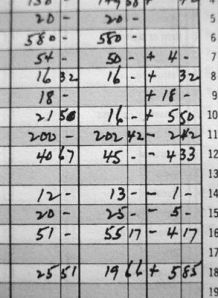 20 - 20 - 5
580 - 580 - 6
54 - 50 - + 4 - 7
16 32 16 - + 32 8
18 - + 18 - 9
21 50 16 - + 5 50 10
200 - 202 42 - 242 11
40 67 45 - - 4 33 12
13
12 - 13 - - 1 - 14
20 - 25 - - 5 - 15
51 - 55 17 - 4 17 16
17
25 51 19 66 + 5 85 18